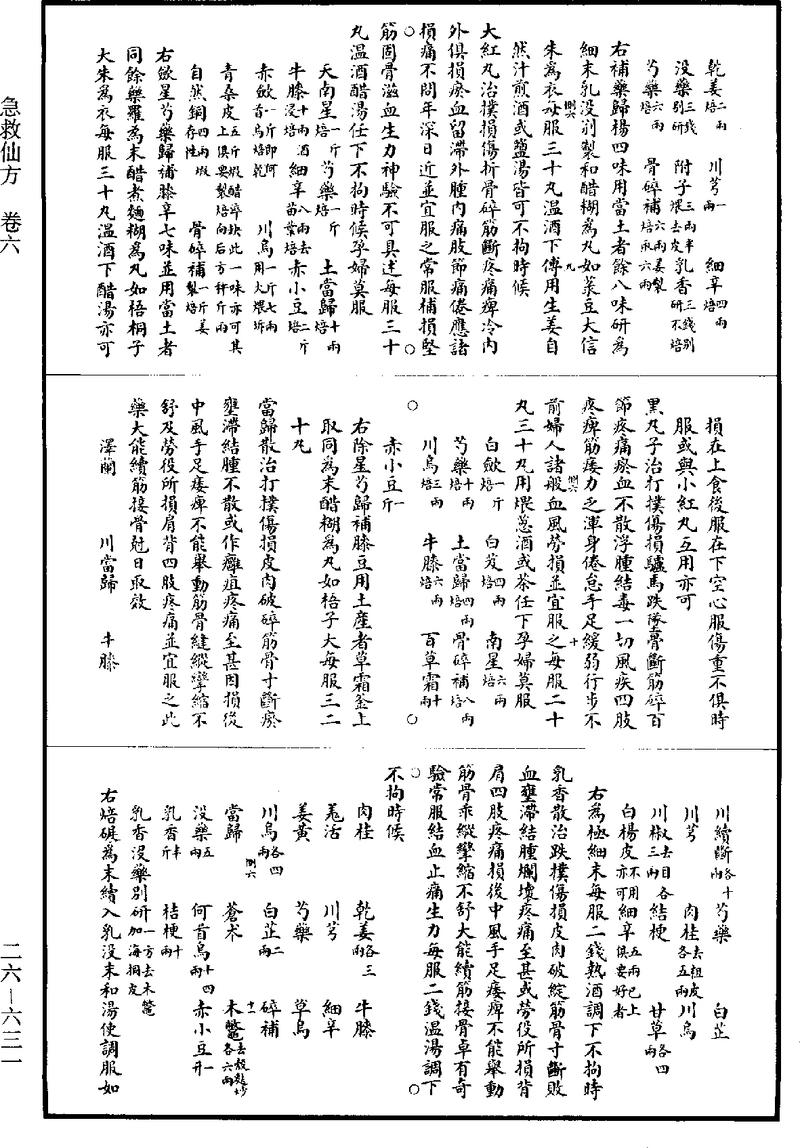 急救仙方　卷六
乾姜二兩焙　川芎一兩　細辛四兩焙
沒藥三錢別研　附子三兩半煨去皮　乳香三錢別研不焙
芍藥六兩焙　骨碎補六兩姜製焙承六兩
右補藥歸楊四味用當土者餘八味研爲
細末乳沒別製和醋糊爲丸如菉豆大信
朱爲衣每服三十丸溫酒下傅用生姜自
然汁煎酒或鹽湯皆可不拘時候
大紅丸治撲損傷折骨碎筋斷疼痛痺冷內
外俱損瘀血留滯外腫內痛肢節痛倦應諸
損痛不問年深日近並宜服之常服補損堅
筋固骨滋血生力神驗不可具述每服三十
丸溫酒醋湯任下不拘時候孕婦莫服
天南星一斤焙　芍藥一斤焙　土當歸十兩焙
牛膝十兩酒浸焙　細辛八兩去苗葉焙　赤小豆二斤焙
赤斂一斤即何首烏焙乾　川烏一斤七兩用火煨坼
青桑皮五斤煅醋碎块此一味亦可其上俱要製焙向后方秤斤兩
自然銅四兩煅存性　骨碎補一斤姜製焙
右斂星芍藥歸補膝辛七味並用當土者
同餘藥羅爲末醋煮麵糊爲丸如梧桐子
大朱爲衣每服三十丸溫酒下醋湯亦可
損在上食後服在下空心服傷重不俱時
服或與小紅丸互用亦可
黑丸子治打撲傷損驢馬跌墜骨斷筋碎百
節疼痛瘀血不散浮腫結毒一切風疾四肢
疼痺筋痿力乏渾身倦怠手足緩弱行步不
前婦人諸般血風勞損並宜服之每服二十
丸三十丸用煨葱酒或茶任下孕婦莫服
白斂一斤焙　白芨四兩焙　南星六兩焙
芍藥十兩焙　土當歸四兩焙　骨碎補八兩焙
川烏三兩焙　牛膝六兩焙　百草霜十兩
赤小豆一斤
右除星芍歸補膝豆用土産者草霜釜上
取同爲末醋糊爲丸如梧子大每服三二
十丸
當歸散治打撲傷損皮肉破碎筋骨寸斷瘀
壅滯結腫不散或作癰疽疼痛至甚因損後
中風手足痿痺不能舉動筋骨縫縱攣縮不
舒及勞役所損肩背四肢疼痛並宜服之此
藥大能續筋接骨尅日取效
澤蘭　川當歸　牛膝
川續斷各十兩　芍藥　白芷
川芎　肉桂去粗皮各五兩　川烏
川椒去目各三兩　結梗　甘草各四兩
白楊皮不用亦可　細辛五兩已上俱要好者
右爲極細末每服二錢熱酒調下不拘時
乳香散治跌撲傷損皮肉破綻筋骨寸斷敗
血壅滯結腫爛壞疼痛至甚或勞役所損背
肩四肢疼痛損後中風手足痿痺不能舉動
筋骨乖縱攣縮不舒大能續筋接骨卓有奇
驗常服結血止痛生力每服二錢溫湯調下
不拘時候
肉桂　乾姜各三兩　牛膝
羌活　川芎　細辛
姜黃　芍藥　草烏
川烏各四兩　白芷二兩　碎補
當歸　蒼朮　木鱉去殼麩炒各六兩
沒藥五兩　何首烏十四兩　赤小豆一升
乳香半斤　桔梗十兩
乳香沒藥別研一方去木鱉加海桐皮
右焙碾爲末續入乳沒末和湯使調服如
二六—六三一